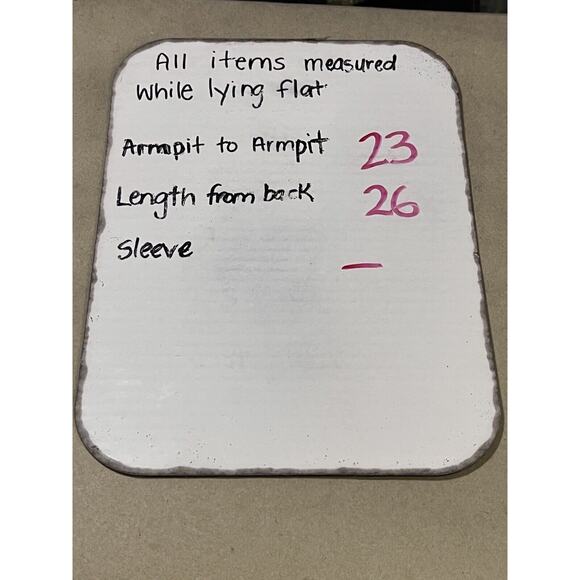 All items measured
while lying flat
Armpit to Armpit 23
Length from back 26
Sleeve —